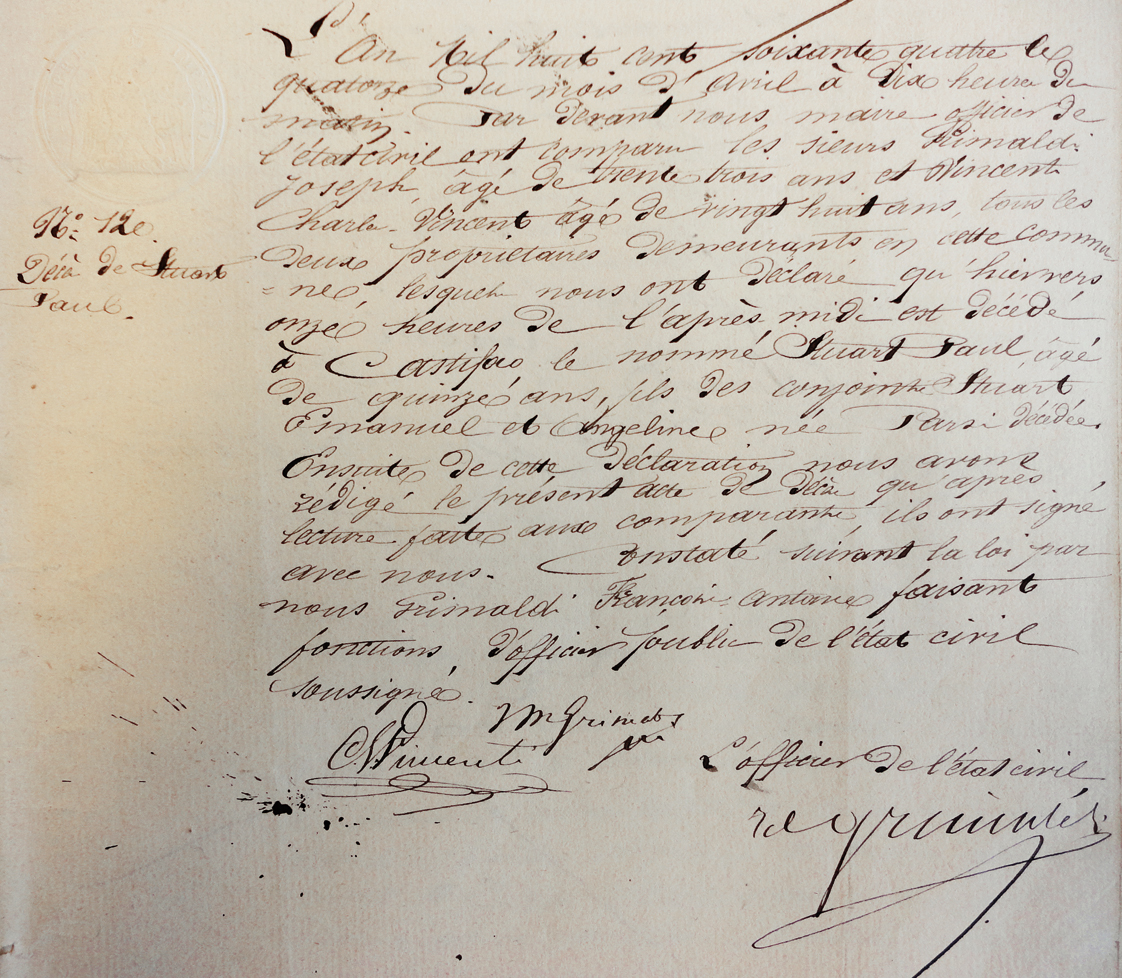 N° 12e.
Décè de Stuart
Paul.
L'An Mil huit cent soixante quatre le
quatorze du mois d'Avril à Dix heures du
matin. Par devant nous maire officier de
l'état civil ont comparu les sieurs Grimaldi
Joseph, âgé de trente trois ans et Vincenti
Charle-Vincent âgé de vingt huit ans, tous les
deux propriétaires demeurants en cette commu
=ne, lesquels nous ont déclaré qu'hier vers
onze heures de l'après midi est décédé
à Castifao le nommé Stuart Paul, âgé
de quinze ans, fils des conjoints Stuart
Emanuel et Angeline née Parsi décédée.
Ensuite de cette déclaration nous avons
redigé le présent acte de décès qu'après
lecture faite aux comparants, ils ont signé
avec nous. Constaté, suivant la loi par
nous Grimaldi François-Antoine faisant
fonctions d'officier public de l'état civil
soussigné.
Vincenti
L'officier de l'état civil